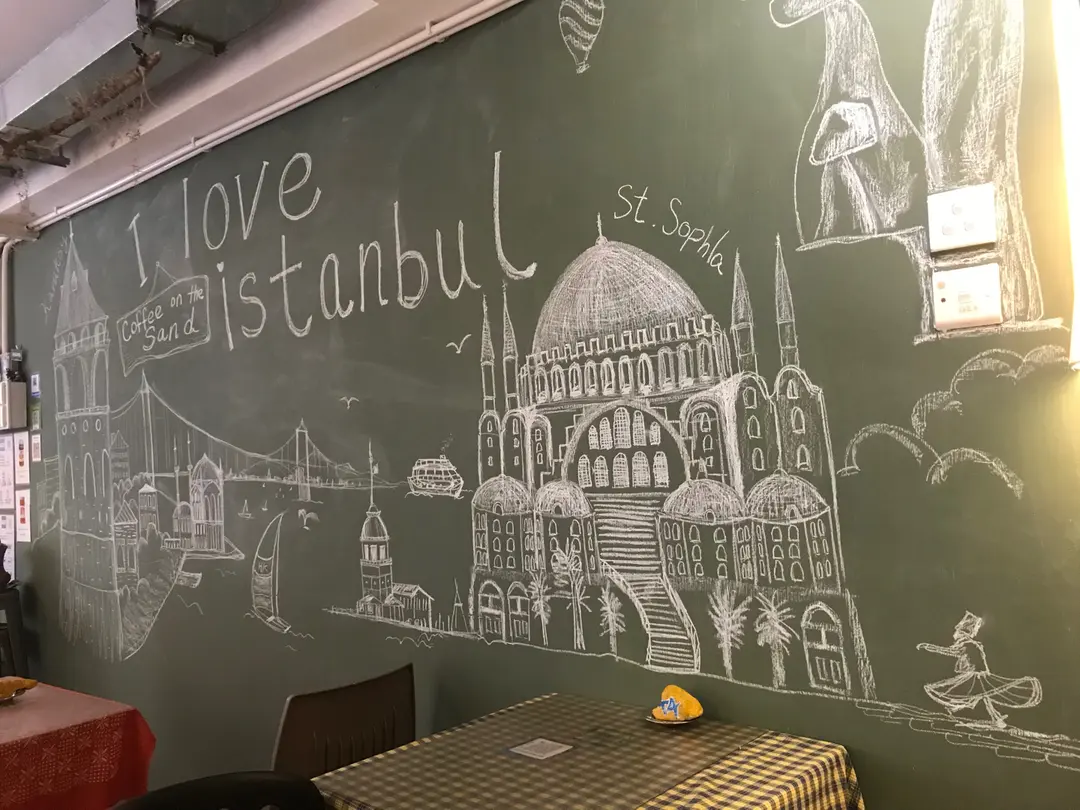 I love
istanbul
Coffee on the
Sand
St. Sophia